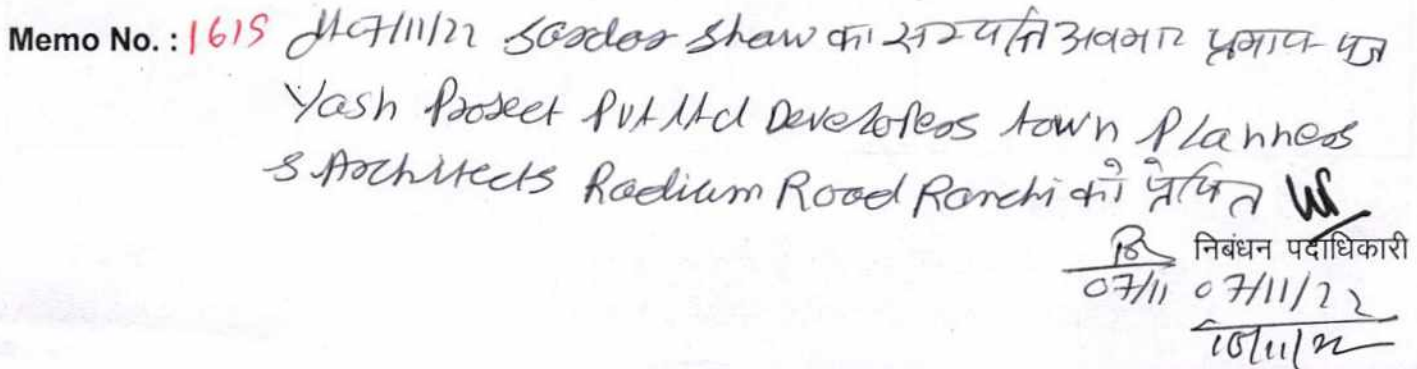 Memo No. : 1615 दि 07/11/22 Sardar Shaw का सम्पत्ति अवभार प्रमाण-पत्र
Yash Project Pvt Ltd Developers town Planners
& Architects Radium Road Ranchi को प्रेषित
निबंधन पदाधिकारी
07/11 07/11/22
10/11/22